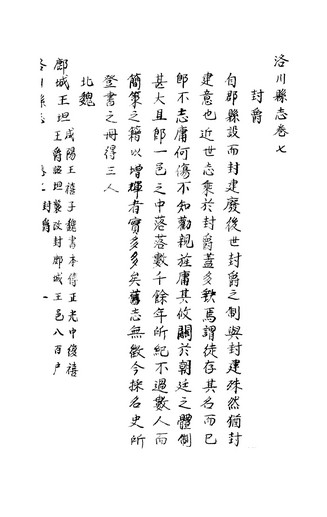 洛川縣志卷七
封爵
自郡縣設而封建廢後世封爵之制與封建殊然猶封
建意也近世志乘於封爵蓋多歉焉謂徒存其名而已
即不志庸何傷不知勸親旌庸其攸關於朝廷之體制
甚大且即一邑之中落落數千餘年所紀不過數人而
簡策之籍以增輝者實多多矣舊志無徵今採名史所
登書之冊得三人
北魏
鄜城王坦咸陽王禧子魏書本傳正光中復禧
王爵坦襲改封鄜城王邑八百戶
封爵 一